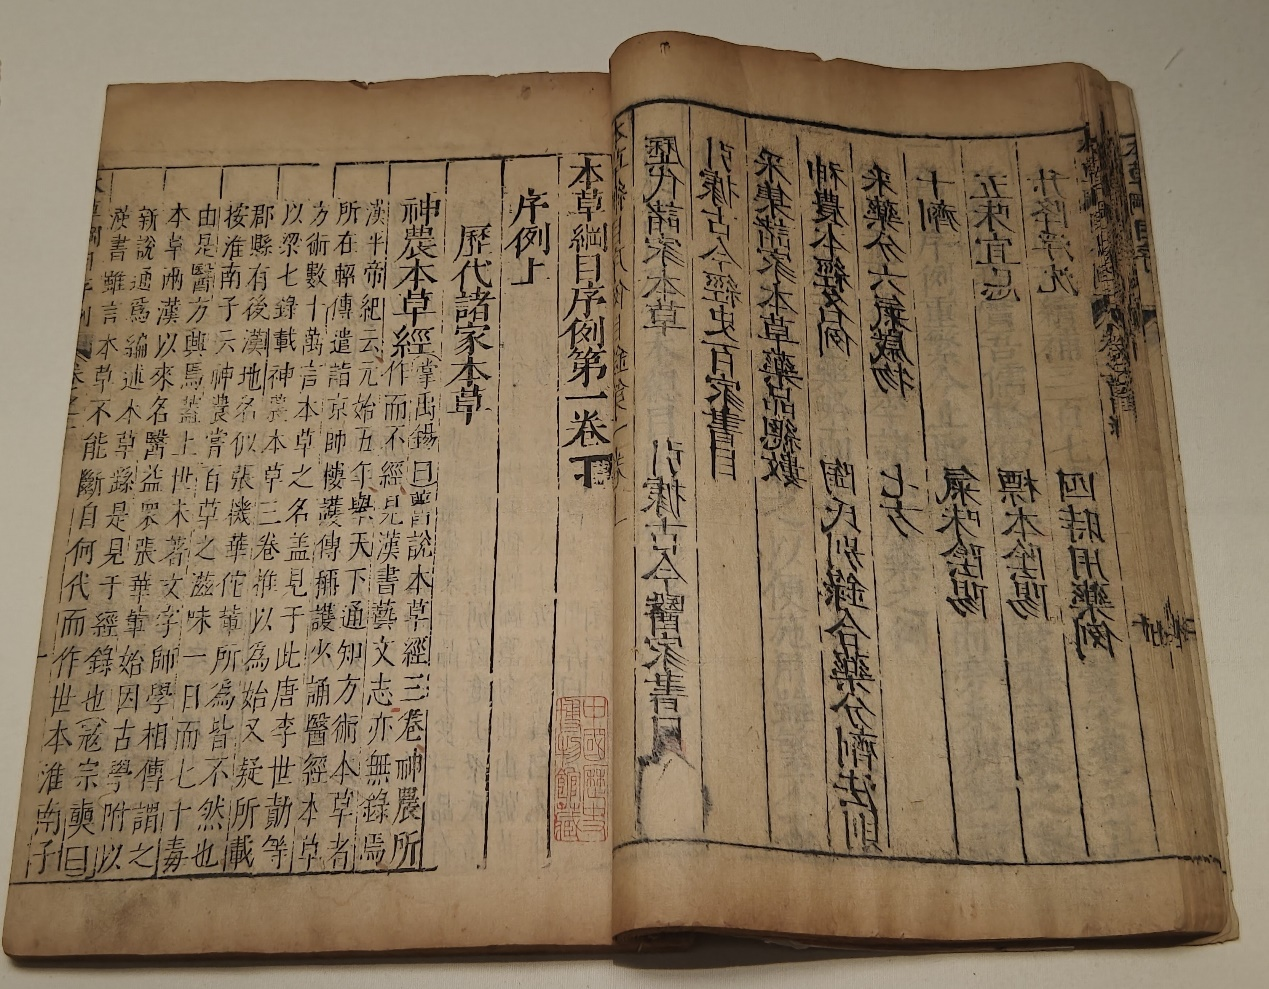 歷代諸家本草 引據古今醫家書目
引據古今經史百家書目
采集諸家本草藥品總數
神農本經名例 陶氏別錄合藥分劑法則
采藥分六氣歲物 七方
十劑 氣味陰陽
五味宜忌 標本陰陽
升降浮沈 四時用藥例
本草綱目序例第一卷
序例上
歷代諸家本草
神農本草經 掌禹錫曰舊說本草經三卷神農所
作而不經見漢書藝文志亦無錄焉
漢平帝紀云元始五年舉天下通知方術本草者
所在軺傳遣詣京師樓護傳稱護少誦醫經本草
方術數十萬言本草之名蓋見于此唐李世勣等
以梁七錄載神農本草三卷推以為始又疑所載
郡縣有後漢地名似張機華佗輩所為皆不然也
按淮南子云神農嘗百草之滋味一日而七十毒
由是醫方興焉蓋上世未著文字師學相傳謂之
本草兩漢以來名醫益眾張華輩始因古學附以
新說通爲編述本草繇是見于經錄也寇宗奭曰
漢書雖言本草不能斷自何代而作世本淮南子
中國歷史
博物館藏